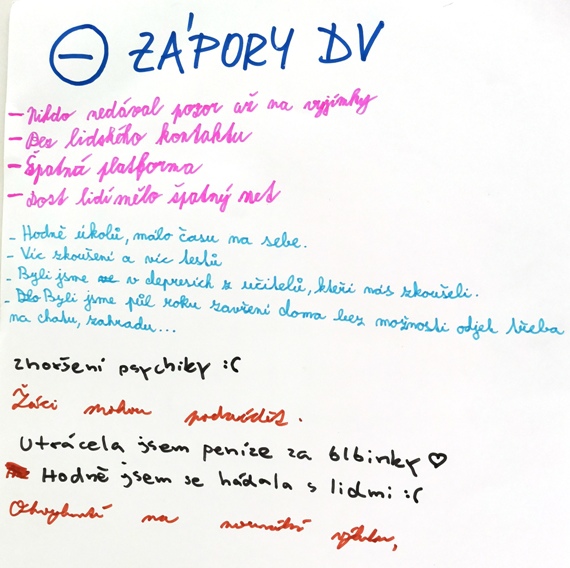 − ZÁPORY DV
– Nikdo nedával pozor až na vyjímky
– Bez lidského kontaktu
– Špatná platforma
– Dost lidí mělo špatný net
- Hodně úkolů, málo času na sebe.
- Víc zkoušení a víc testů
- Byli jsme v depresích z učitelů, kteří nás zkoušeli.
- Byli jsme půl roku zavření doma bez možnosti odjet třeba
na chatu, zahradu...
zhoršení psychiky :(
Žáci mohou podvádět.
Utrácela jsem peníze za blbinky ♡
Hodně jsem se hádala s lidmi :(
na normální výuku,